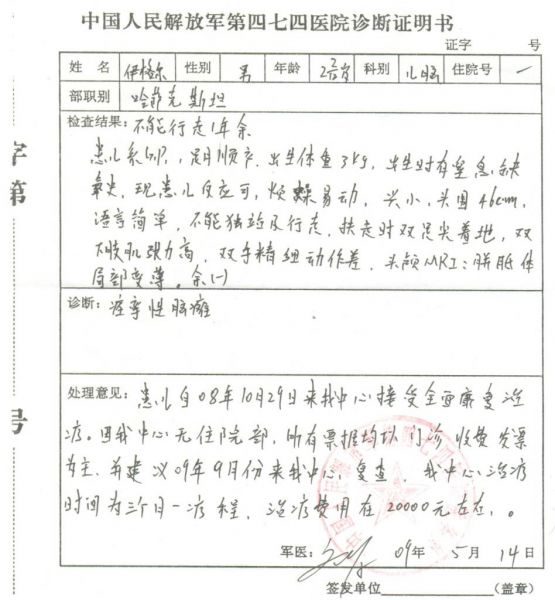 中国人民解放军第四七四医院诊断证明书
证字 号
姓 名 伊格尔 性别 男 年龄 2岁 科别 儿脑 住院号 一
部职别 哈萨克斯坦
检查结果：不能行走1年余
患儿系G1P1，足月顺产，出生体重3kg，出生时有窒息、缺
氧史，现患儿反应可，烦躁易动，头小，头围46cm，
语言简单，不能独站及行走，扶走时双足尖着地，双
下肢肌张力高，双手精细动作差，头颅MRI：胼胝体
局部变薄。余(-)
诊断：痉挛性脑瘫
处理意见：患儿自08年10月29日来我中心接受全面康复治
疗。因我中心无住院部，所有票据均以门诊收费发票
为主，并建议09年9月份来我中心复查，我中心治疗
时间为三个月一疗程，治疗费用在20000元左右。
军医： 09年 5月 14日
签发单位 （盖章）
字
第
号